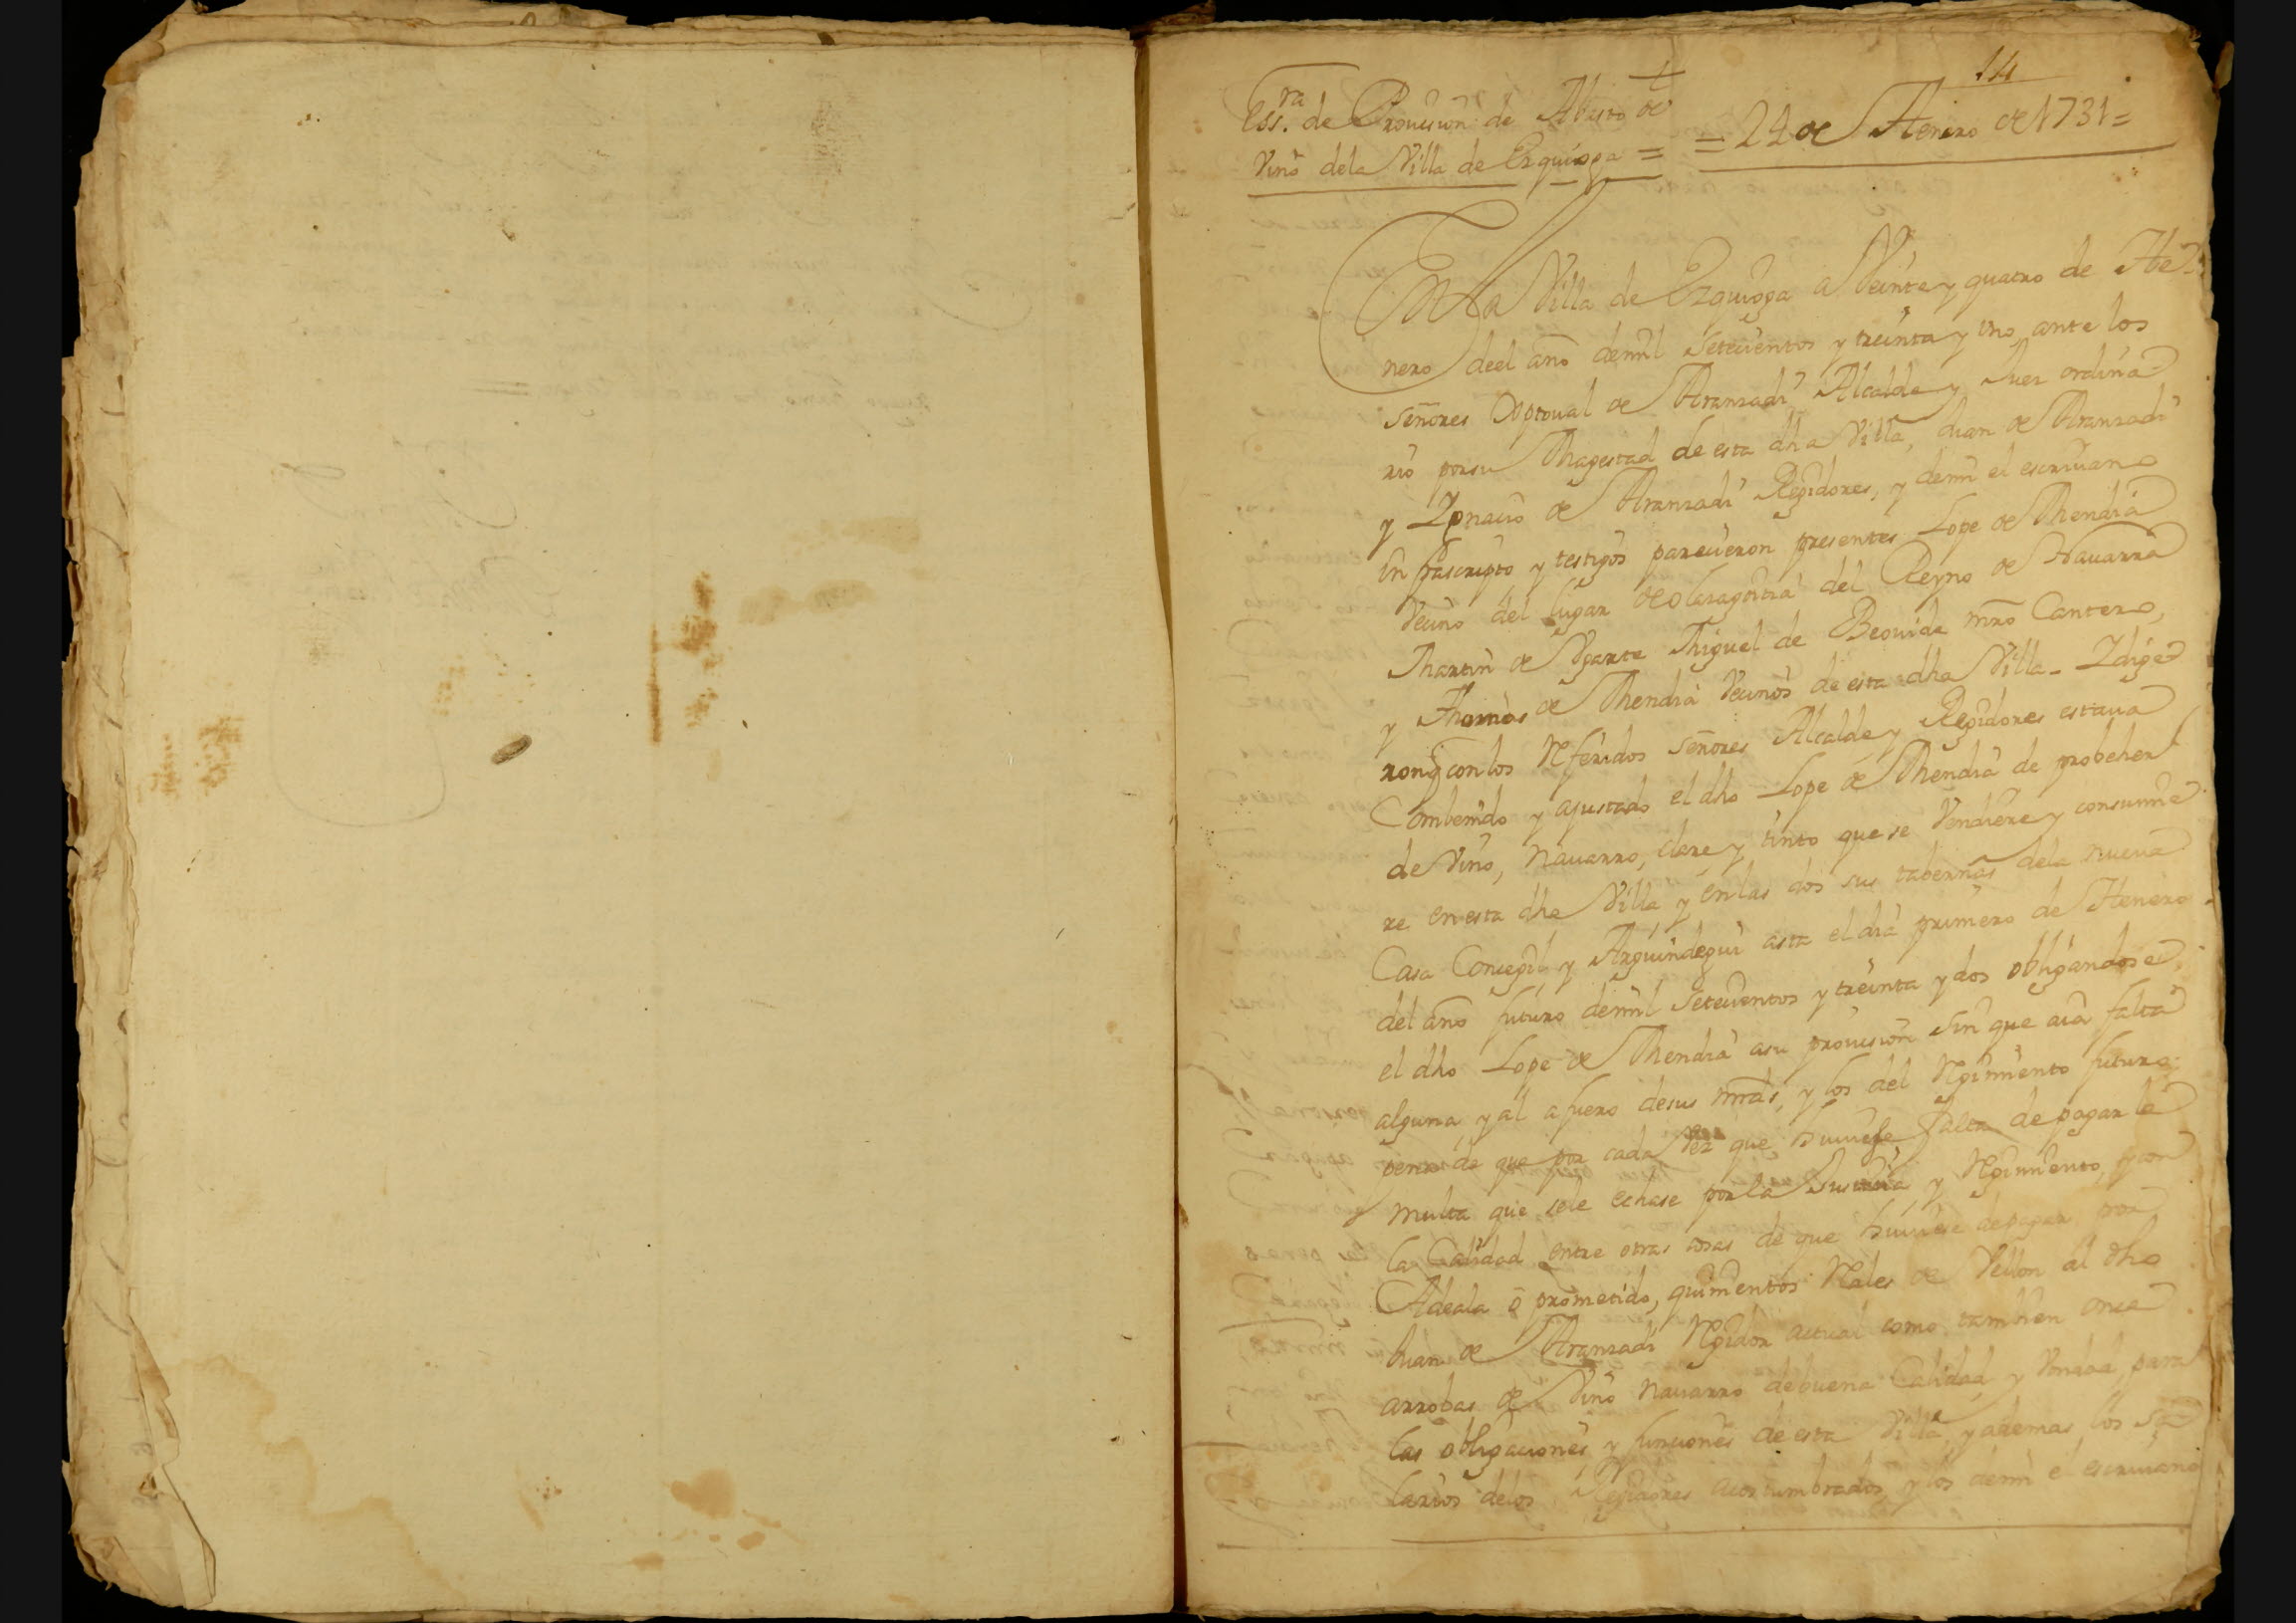 14
Ess.ra de Provision de Abasto de
Vino dela Villa de Ezquioga = = 24 de Henero de 1731 =
En la Villa de Ezquioga a Veinte y quatro de He-
nero deel año demil Setecientos y treinta y uno, ante los
señores Xptoual de Aranzadi Alcalde y Juez ordina-
rio por su Magestad de esta dha Villa, Juan de Aranzadi
y Ignacio de Aranzadi Regidores, y demi el escriuano
infrascripto y testigos parecieron presentes Lope de Mendia
Vecino del lugar de Olazagoitia del Reyno de Nauarra
Martin de Ygarte Miguel de Beovide mro Cantero,
y Thomas de Mendia Vecinos de esta dha Villa - Y dige-
ron q con los Referidos señores Alcalde y Regidores estaua
Combenido y ajustado el dho Lope de Mendia de probeher
de Vino, nauarro, clare y tinto que se Vendiere y consumie-
re en esta dha Villa, y en las dos sus tabernas dela nueva
Casa Concegil, y Arguindegui asta el dia primero de Henero
del año futuro demil Setecientos y treinta y dos obligandose
el dho Lope de Mendia asu provision sin que aia falta
alguna, y al afuero desus mrds, y los del Regimiento futuro,
pena de que por cada Vez que huuiese falta de pagar la
multa que sele echase por la Justicia, y Regimiento, y con
la Calidad entre otras cosas de que huuiese de pagar por
Adeala o prometido, quinientos Reales de Vellon al dho
Juan de Aranzadi Regidor actual como tambien once
arrobas de Vino Nauarro de buena Calidad, y Vondad para
las obligaciones, y funciones de esta Villa, y ademas los sa-
larios delos Regidores acostumbrados, y los demi el escriuano